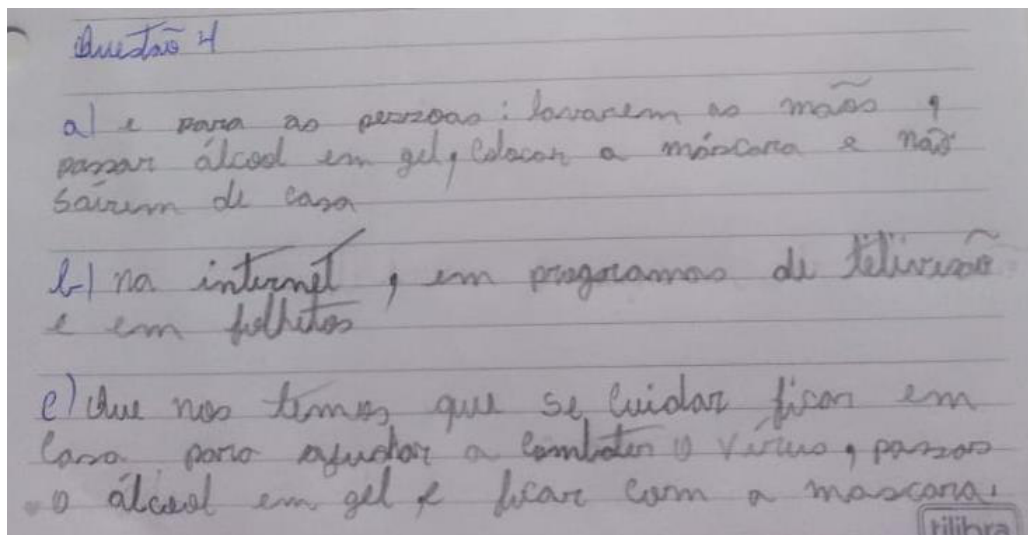 Questão 4
a) e para as pessoas: lavarem as mãos,
passar álcool em gel, Colocar a máscara e não
saírem de casa
b) na internet, em programas de televisão
e em folhetos
c) Que nos temos que se cuidar ficar em
Casa para ajudar a combater o vírus, passar
o álcool em gel e ficar com a mascara.
tilibra